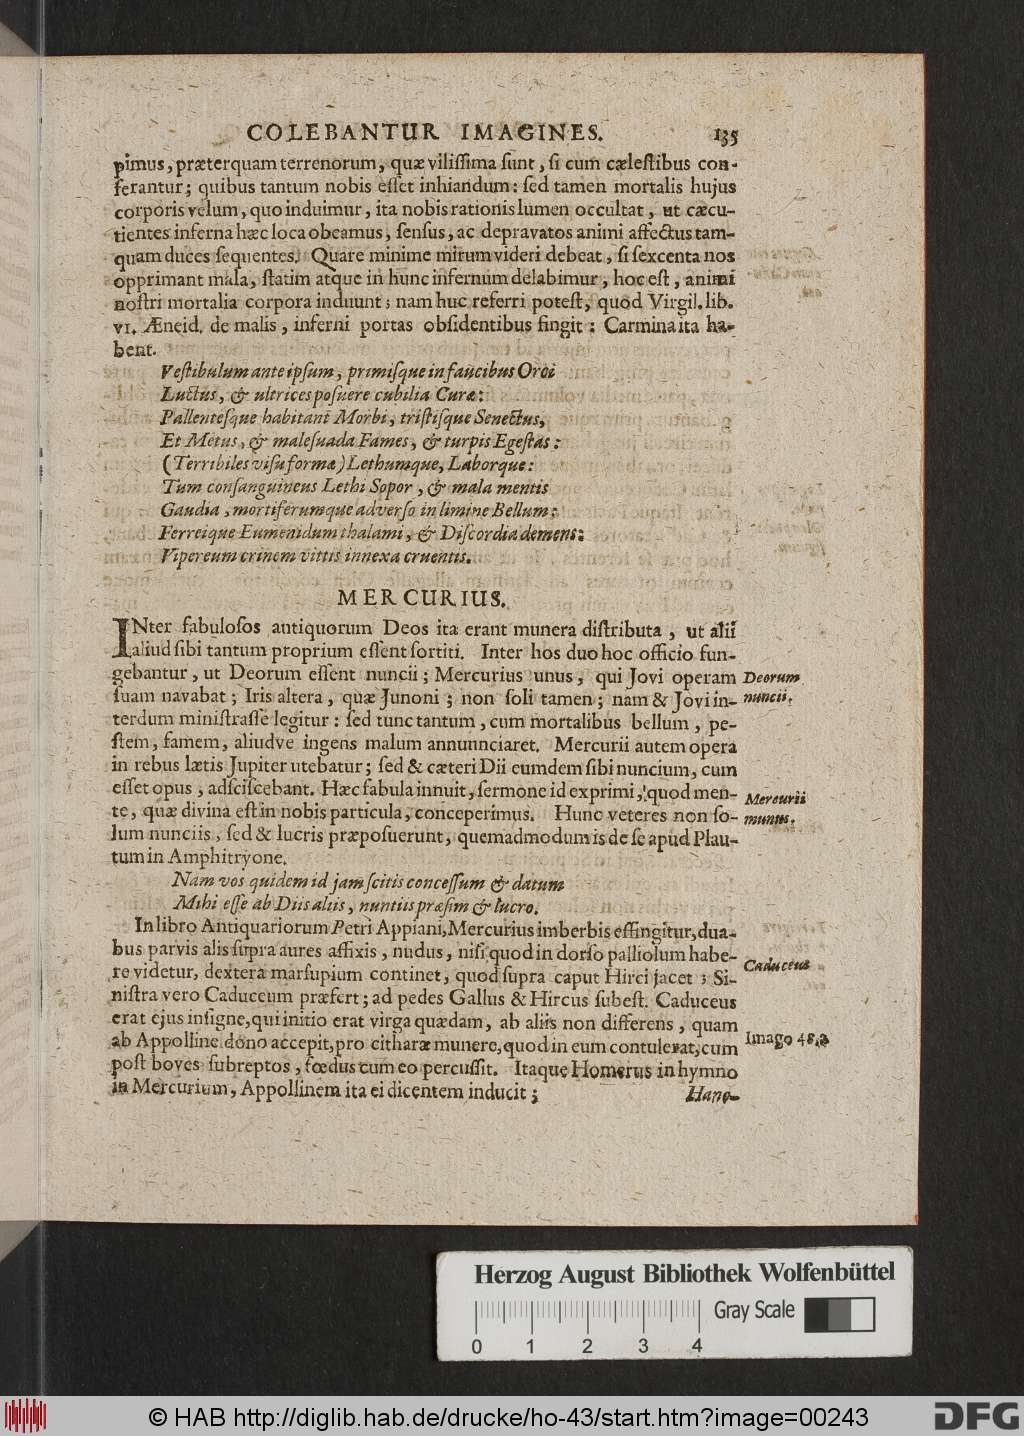 COLEBANTUR IMAGINES. 135
pimus, præterquam terrenorum, quæ vilissima sunt, si cum cælestibus con-
ferantur; quibus tantum nobis esset inhiandum: sed tamen mortalis hujus
corporis velum, quo induimur, ita nobis rationis lumen occultat, ut cæcu-
tientes inferna hæc loca obeamus, sensus, ac depravatos animi affectus tam-
quam duces sequentes. Quare minime mirum videri debeat, si sexcenta nos
opprimant mala, statim atque in hunc infernum delabimur, hoc est, animi
nostri mortalia corpora induunt; nam huc referri potest, quod Virgil. lib.
VI. Æneid. de malis, inferni portas obsidentibus fingit: Carmina ita ha-
bent.
Vestibulum ante ipsum, primisque in faucibus Orci
Luctus, & ultrices posuere cubilia Curæ:
Pallentesque habitant Morbi, tristisque Senectus,
Et Metus, & malesuada Fames, & turpis Egestas:
(Terribiles visu formæ) Lethumque, Laborque:
Tum consanguineus Lethi Sopor, & mala mentis
Gaudia, mortiferumque adverso in limine Bellum:
Ferreique Eumenidum thalami, & Discordia demens:
Vipereum crinem vittis innexa cruentis.
MERCURIUS.
INter fabulosos antiquorum Deos ita erant munera distributa, ut alii
aliud sibi tantum proprium essent sortiti. Inter hos duo hoc officio fun-
gebantur, ut Deorum essent nuncii; Mercurius unus, qui Jovi operam
suam navabat; Iris altera, quæ Junoni; non soli tamen; nam & Jovi in-
terdum ministrasse legitur: sed tunc tantum, cum mortalibus bellum, pe-
stem, famem, aliudve ingens malum annunnciaret. Mercurii autem opera
in rebus lætis Jupiter utebatur; sed & cæteri Dii eumdem sibi nuncium, cum
esset opus, adsciscebant. Hæc fabula innuit, sermone id exprimi, quod men-
te, quæ divina est in nobis particula, conceperimus. Hunc veteres non so-
lum nunciis, sed & lucris præposuerunt, quemadmodum is de se apud Plau-
tum in Amphitryone.
Nam vos quidem id jam scitis concessum & datum
Mihi esse ab Diis aliis, nuntiis præsim & lucro.
In libro Antiquariorum Petri Appiani, Mercurius imberbis effingitur, dua-
bus parvis alis supra aures affixis, nudus, nisi quod in dorso palliolum habe-
re videtur, dextera marsupium continet, quod supra caput Hirci jacet; Si-
nistra vero Caduceum præfert; ad pedes Gallus & Hircus subest. Caduceus
erat ejus insigne, qui initio erat virga quædam, ab aliis non differens, quam
ab Appolline dono accepit, pro citharæ munere, quod in eum contulerat, cum
post boves subreptos, fœdus cum eo percussit. Itaque Homerus in hymno
in Mercurium, Appollinem ita ei dicentem inducit;
Hanc-
Deorum
nuncii.
Mercurii
munus.
Caduceus
Imago 48.
Herzog August Bibliothek Wolfenbüttel
Gray Scale
0 1 2 3 4
© HAB http://diglib.hab.de/drucke/ho-43/start.htm?image=00243
DFG